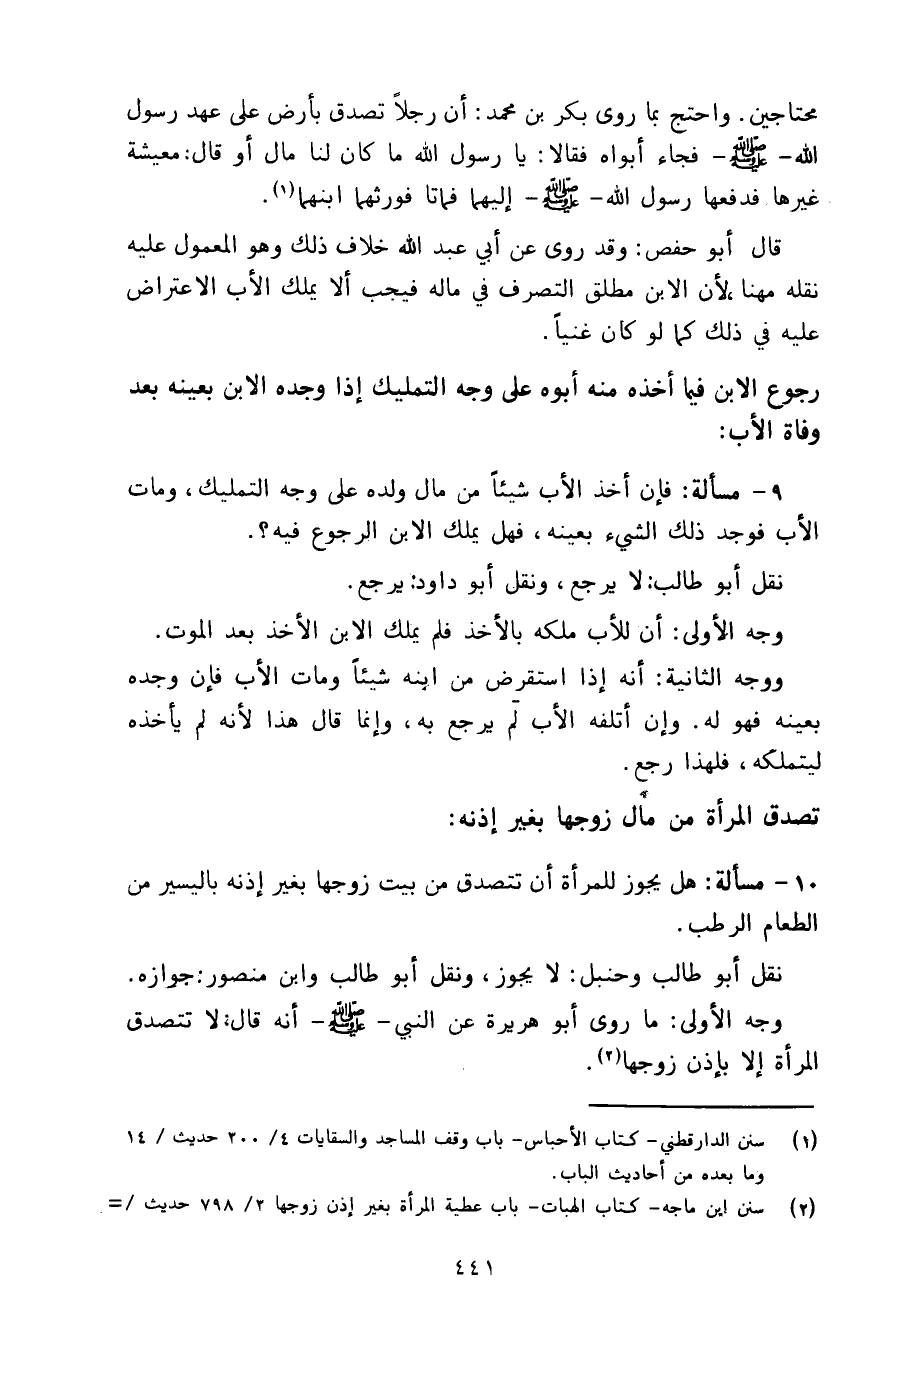 محتاجين. واحتج بما روى بكر بن محمد: أن رجلاً تصدق بأرض على عهد رسول
الله- ﷺ- فجاء أبواه فقالا: يا رسول الله ما كان لنا مال أو قال: معيشة
غيرها فدفعها رسول الله- ﷺ- إليهما فماتا فورثهما ابنهما(١).
قال أبو حفص: وقد روى عن أبي عبد الله خلاف ذلك وهو المعمول عليه
نقله مهنا، لأن الابن مطلق التصرف في ماله فيجب ألا يملك الأب الاعتراض
عليه في ذلك كما لو كان غنياً.
رجوع الابن فيما أخذه منه أبوه على وجه التمليك إذا وجده الابن بعينه بعد
وفاة الأب:
٩- مسألة: فإن أخذ الأب شيئاً من مال ولده على وجه التمليك، ومات
الأب فوجد ذلك الشيء بعينه، فهل يملك الابن الرجوع فيه؟.
نقل أبو طالب: لا يرجع، ونقل أبو داود: يرجع.
وجه الأولى: أن للأب ملكه بالأخذ فلم يملك الابن الأخذ بعد الموت.
ووجه الثانية: أنه إذا استقرض من ابنه شيئاً ومات الأب فإن وجده
بعينه فهو له. وإن أتلفه الأب لم يرجع به، وإنما قال هذا لأنه لم يأخذه
ليتملكه، فلهذا رجع.
تصدق المرأة من مال زوجها بغير إذنه:
١٠- مسألة: هل يجوز للمرأة أن تتصدق من بيت زوجها بغير إذنه باليسير من
الطعام الرطب.
نقل أبو طالب وحنبل: لا يجوز، ونقل أبو طالب وابن منصور: جوازه.
وجه الأولى: ما روى أبو هريرة عن النبي- ﷺ- أنه قال: لا تتصدق
المرأة إلا بإذن زوجها(٢).
(١) سنن الدارقطني- كتاب الأحباس- باب وقف المساجد والسقايات ٤/ ٢٠٠ حديث / ١٤
وما بعده من أحاديث الباب.
(٢) سنن ابن ماجه- كتاب الهبات- باب عطية المرأة بغير إذن زوجها ٢/ ٧٩٨ حديث /=
٤٤١